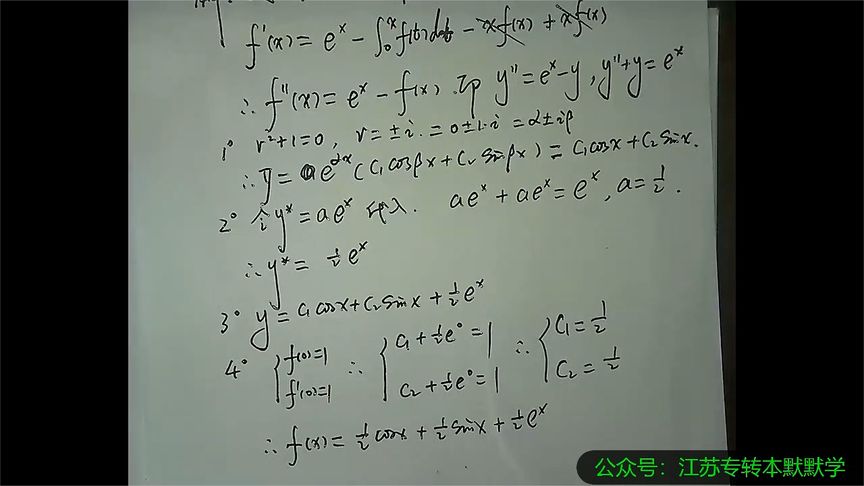 f'(x) = e^x - ∫₀^x f(t)dt - xf(x) + xf(x)
∴ f''(x) = e^x - f(x). 即 y'' = e^x - y, y'' + y = e^x
1° r² + 1 = 0, r = ±i = 0 ± 1·i = α ± iβ
∴ ȳ = e^{αx}(C₁cosβx + C₂sinβx) = C₁cosx + C₂sinx.
2° 令 y* = ae^x 代入. ae^x + ae^x = e^x, a = 1/2.
∴ y* = 1/2 e^x
3° y = C₁cosx + C₂sinx + 1/2 e^x
4° { f(0)=1 ∴ { C₁ + 1/2 e⁰ = 1 ∴ { C₁ = 1/2
f'(0)=1 C₂ + 1/2 e⁰ = 1 C₂ = 1/2
∴ f(x) = 1/2 cosx + 1/2 sinx + 1/2 e^x
公众号：江苏专转本默默学